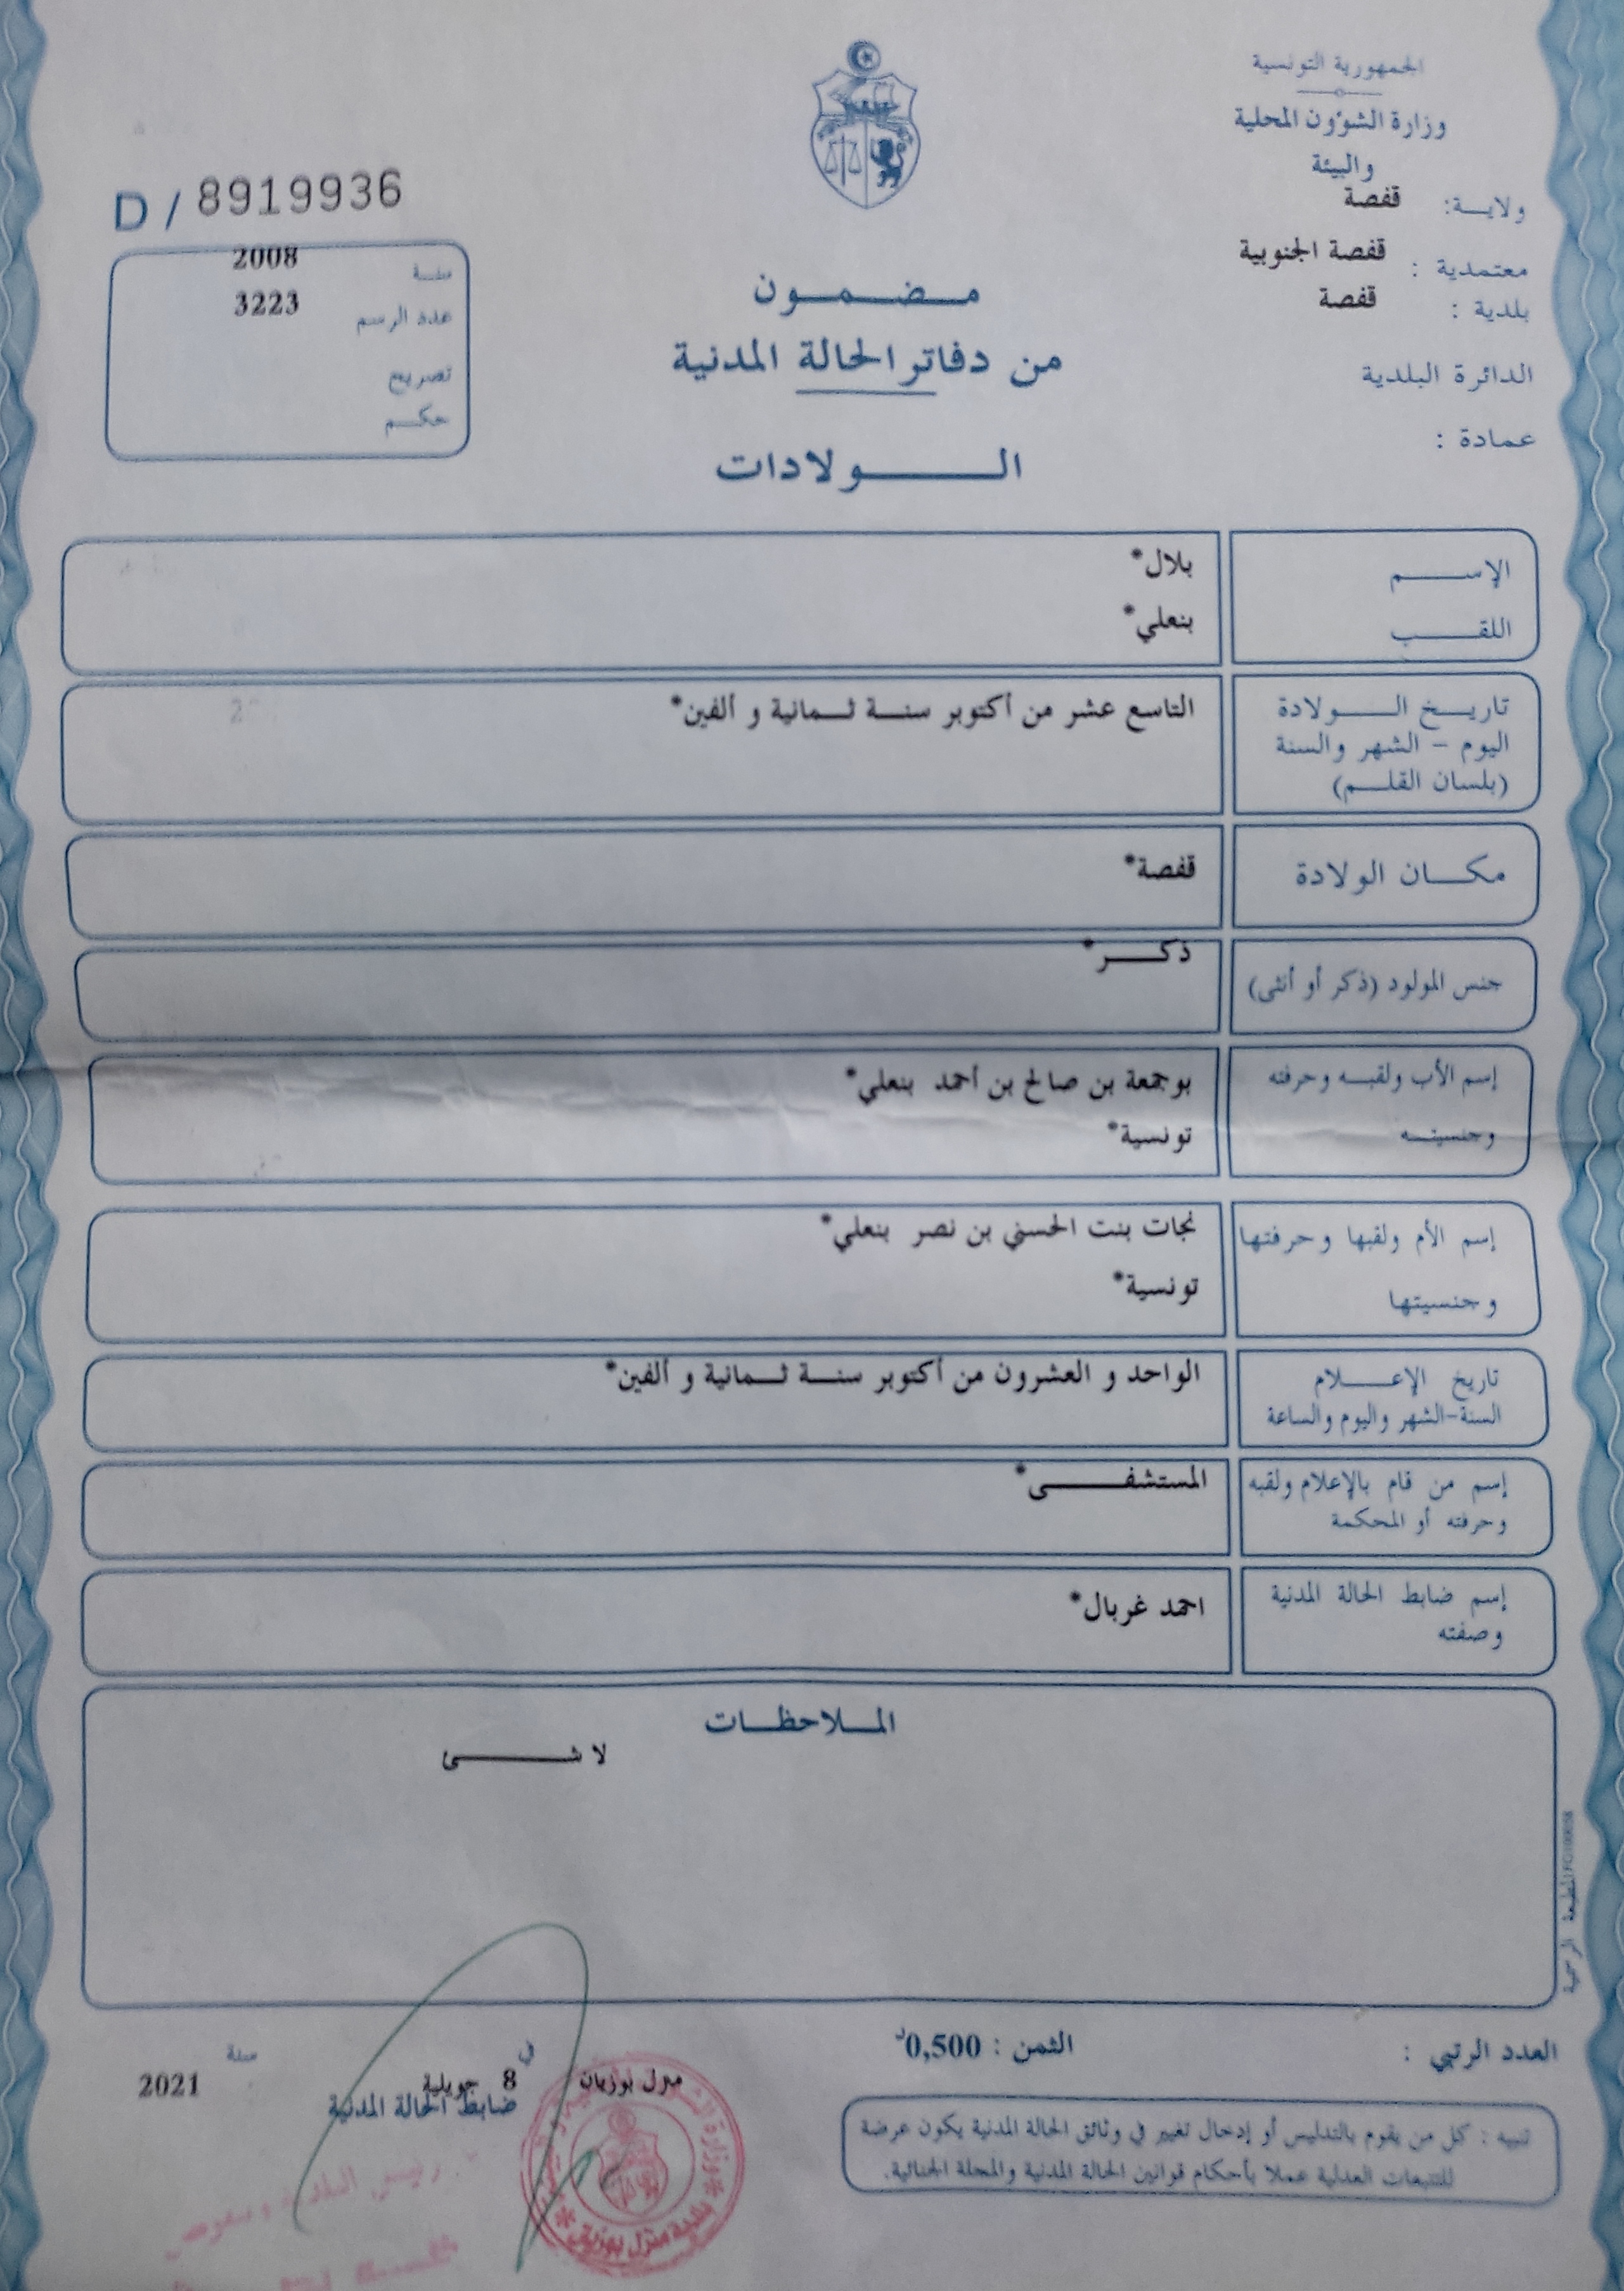 الجمهورية التونسية
وزارة الشؤون المحلية
والبيئة
ولاية: قفصة
معتمدية : قفصة الجنوبية
بلدية : قفصة
الدائرة البلدية
عمادة :
D / 8919936
سنة 2008
عدد الرسم 3223
تصريح
حكم
مضمون
من دفاتر الحالة المدنية
الولادات
الإسم بلال*
اللقب بنعلي*
تاريخ الولادة التاسع عشر من أكتوبر سنة ثمانية و ألفين*
اليوم - الشهر والسنة
(بلسان القلم)
مكان الولادة قفصة*
جنس المولود (ذكر أو أنثى) ذكر*
إسم الأب ولقبه وحرفته بوجمعة بن صالح بن أحمد بنعلي*
وجنسيته تونسية*
إسم الأم ولقبها وحرفتها نجات بنت الحسني بن نصر بنعلي*
وجنسيتها تونسية*
تاريخ الإعلام الواحد و العشرون من أكتوبر سنة ثمانية و ألفين*
السنة-الشهر واليوم والساعة
إسم من قام بالإعلام ولقبه المستشفى*
وحرفته أو المحكمة
إسم ضابط الحالة المدنية احمد غربال*
وصفته
الملاحظات
لا شئ
المطبعة الرسمية
العدد الرتبي :
الثمن : 0,500د
منزل بوزيان في 8 جويلية سنة 2021
ضابط الحالة المدنية
بلدية منزل بوزيان
تنبيه : كل من يقوم بالتدليس أو إدخال تغيير في وثائق الحالة المدنية يكون عرضة
للتتبعات العدلية عملا بأحكام قوانين الحالة المدنية والمجلة الجنائية.